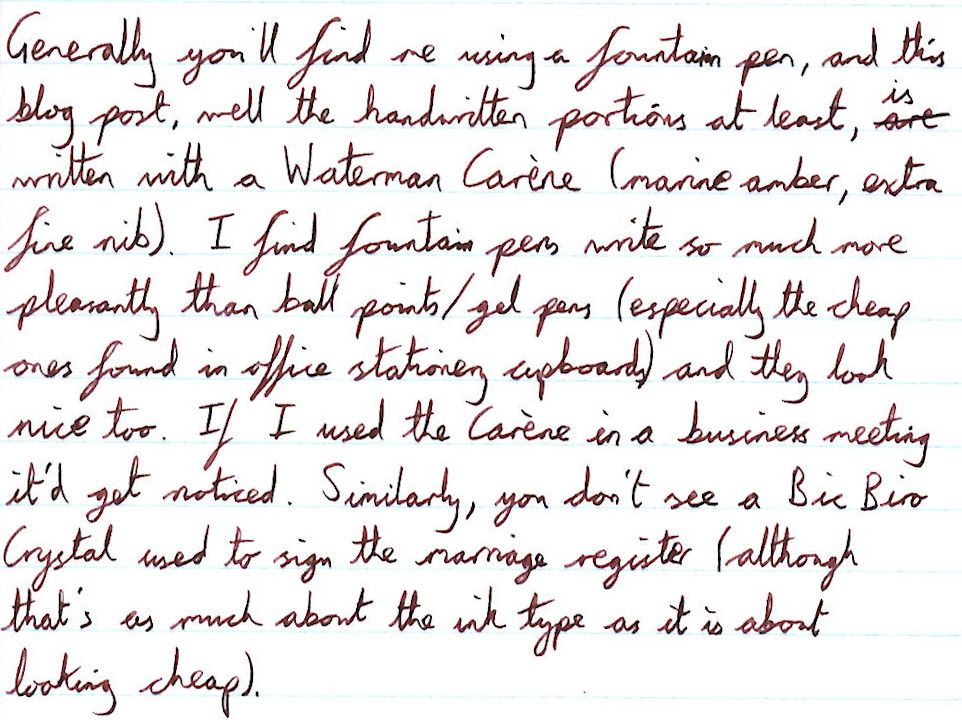 Generally you'll find me using a fountain pen, and this
blog post, well the handwritten portions at least, ~~are~~ is
written with a Waterman Carène (marine amber, extra
fine nib). I find fountain pens write so much more
pleasantly than ball points/gel pens (especially the cheap
ones found in office stationery cupboards) and they look
nice too. If I used the Carène in a business meeting
it'd get noticed. Similarly, you don't see a Bic Biro
Crystal used to sign the marriage register (although
that's as much about the ink type as it is about
looking cheap).